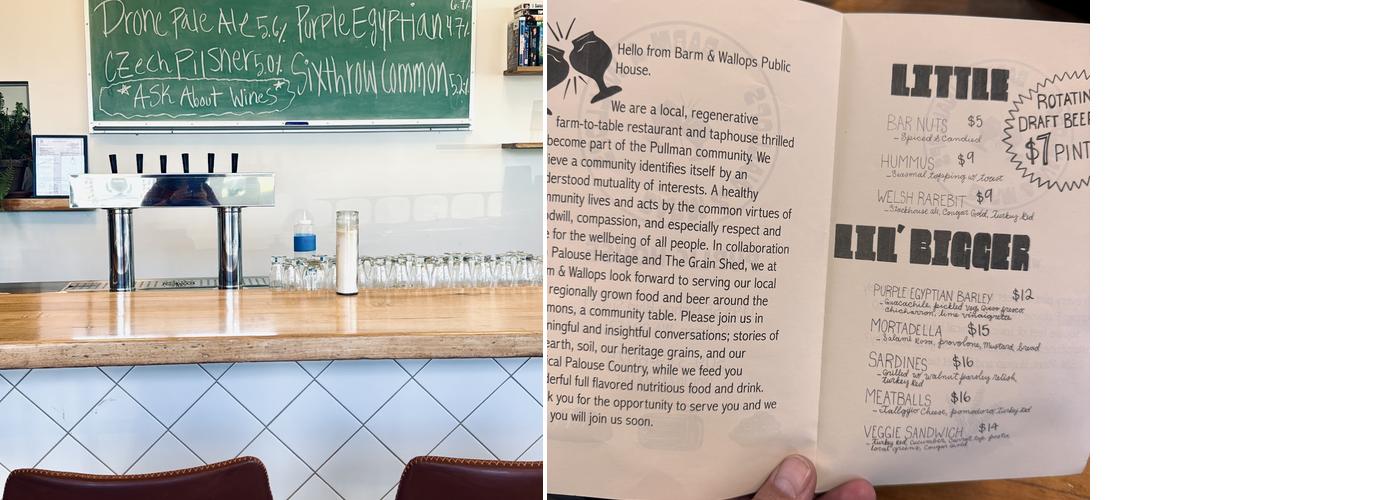 6.7%
Drone Pale Ale 5.6% Purple Egyptian 4.7%
CZech Pilsner 5.0% Sixthrow Common 5.2%
*ASK About Wines*
Hello from Barm & Wallops Public
House.
We are a local, regenerative
farm-to-table restaurant and taphouse thrilled
become part of the Pullman community. We
ieve a community identifies itself by an
derstood mutuality of interests. A healthy
mmunity lives and acts by the common virtues of
odwill, compassion, and especially respect and
e for the wellbeing of all people. In collaboration
Palouse Heritage and The Grain Shed, we at
m & Wallops look forward to serving our local
regionally grown food and beer around the
mons, a community table. Please join us in
ningful and insightful conversations; stories of
earth, soil, our heritage grains, and our
ical Palouse Country, while we feed you
derful full flavored nutritious food and drink.
k you for the opportunity to serve you and we
you will join us soon.
LITTLE
BAR NUTS $5
- Spiced & Candied
HUMMUS $9
- Seasonal topping w/ toast
WELSH RAREBIT $9
- Stockhouse ale, Cougar Gold, Turkey Red
ROTATIN
DRAFT BEER
$7 PINT
LIL' BIGGER
PURPLE EGYPTIAN BARLEY $12
- Guacachile, pickled veg, Queso fresco,
chicharron, lime vinaigrette
MORTADELLA $15
- Salami Rosa, provolone, Mustard, bread
SARDINES $16
- Grilled w/ walnut parsley relish,
turkey Red
MEATBALLS $16
- Tallegio Cheese, pomodoro, Turkey Red
VEGGIE SANDWICH $14
- Turkey Red, Cucumber, Carrot top pesto
local greens, Cougar Gold